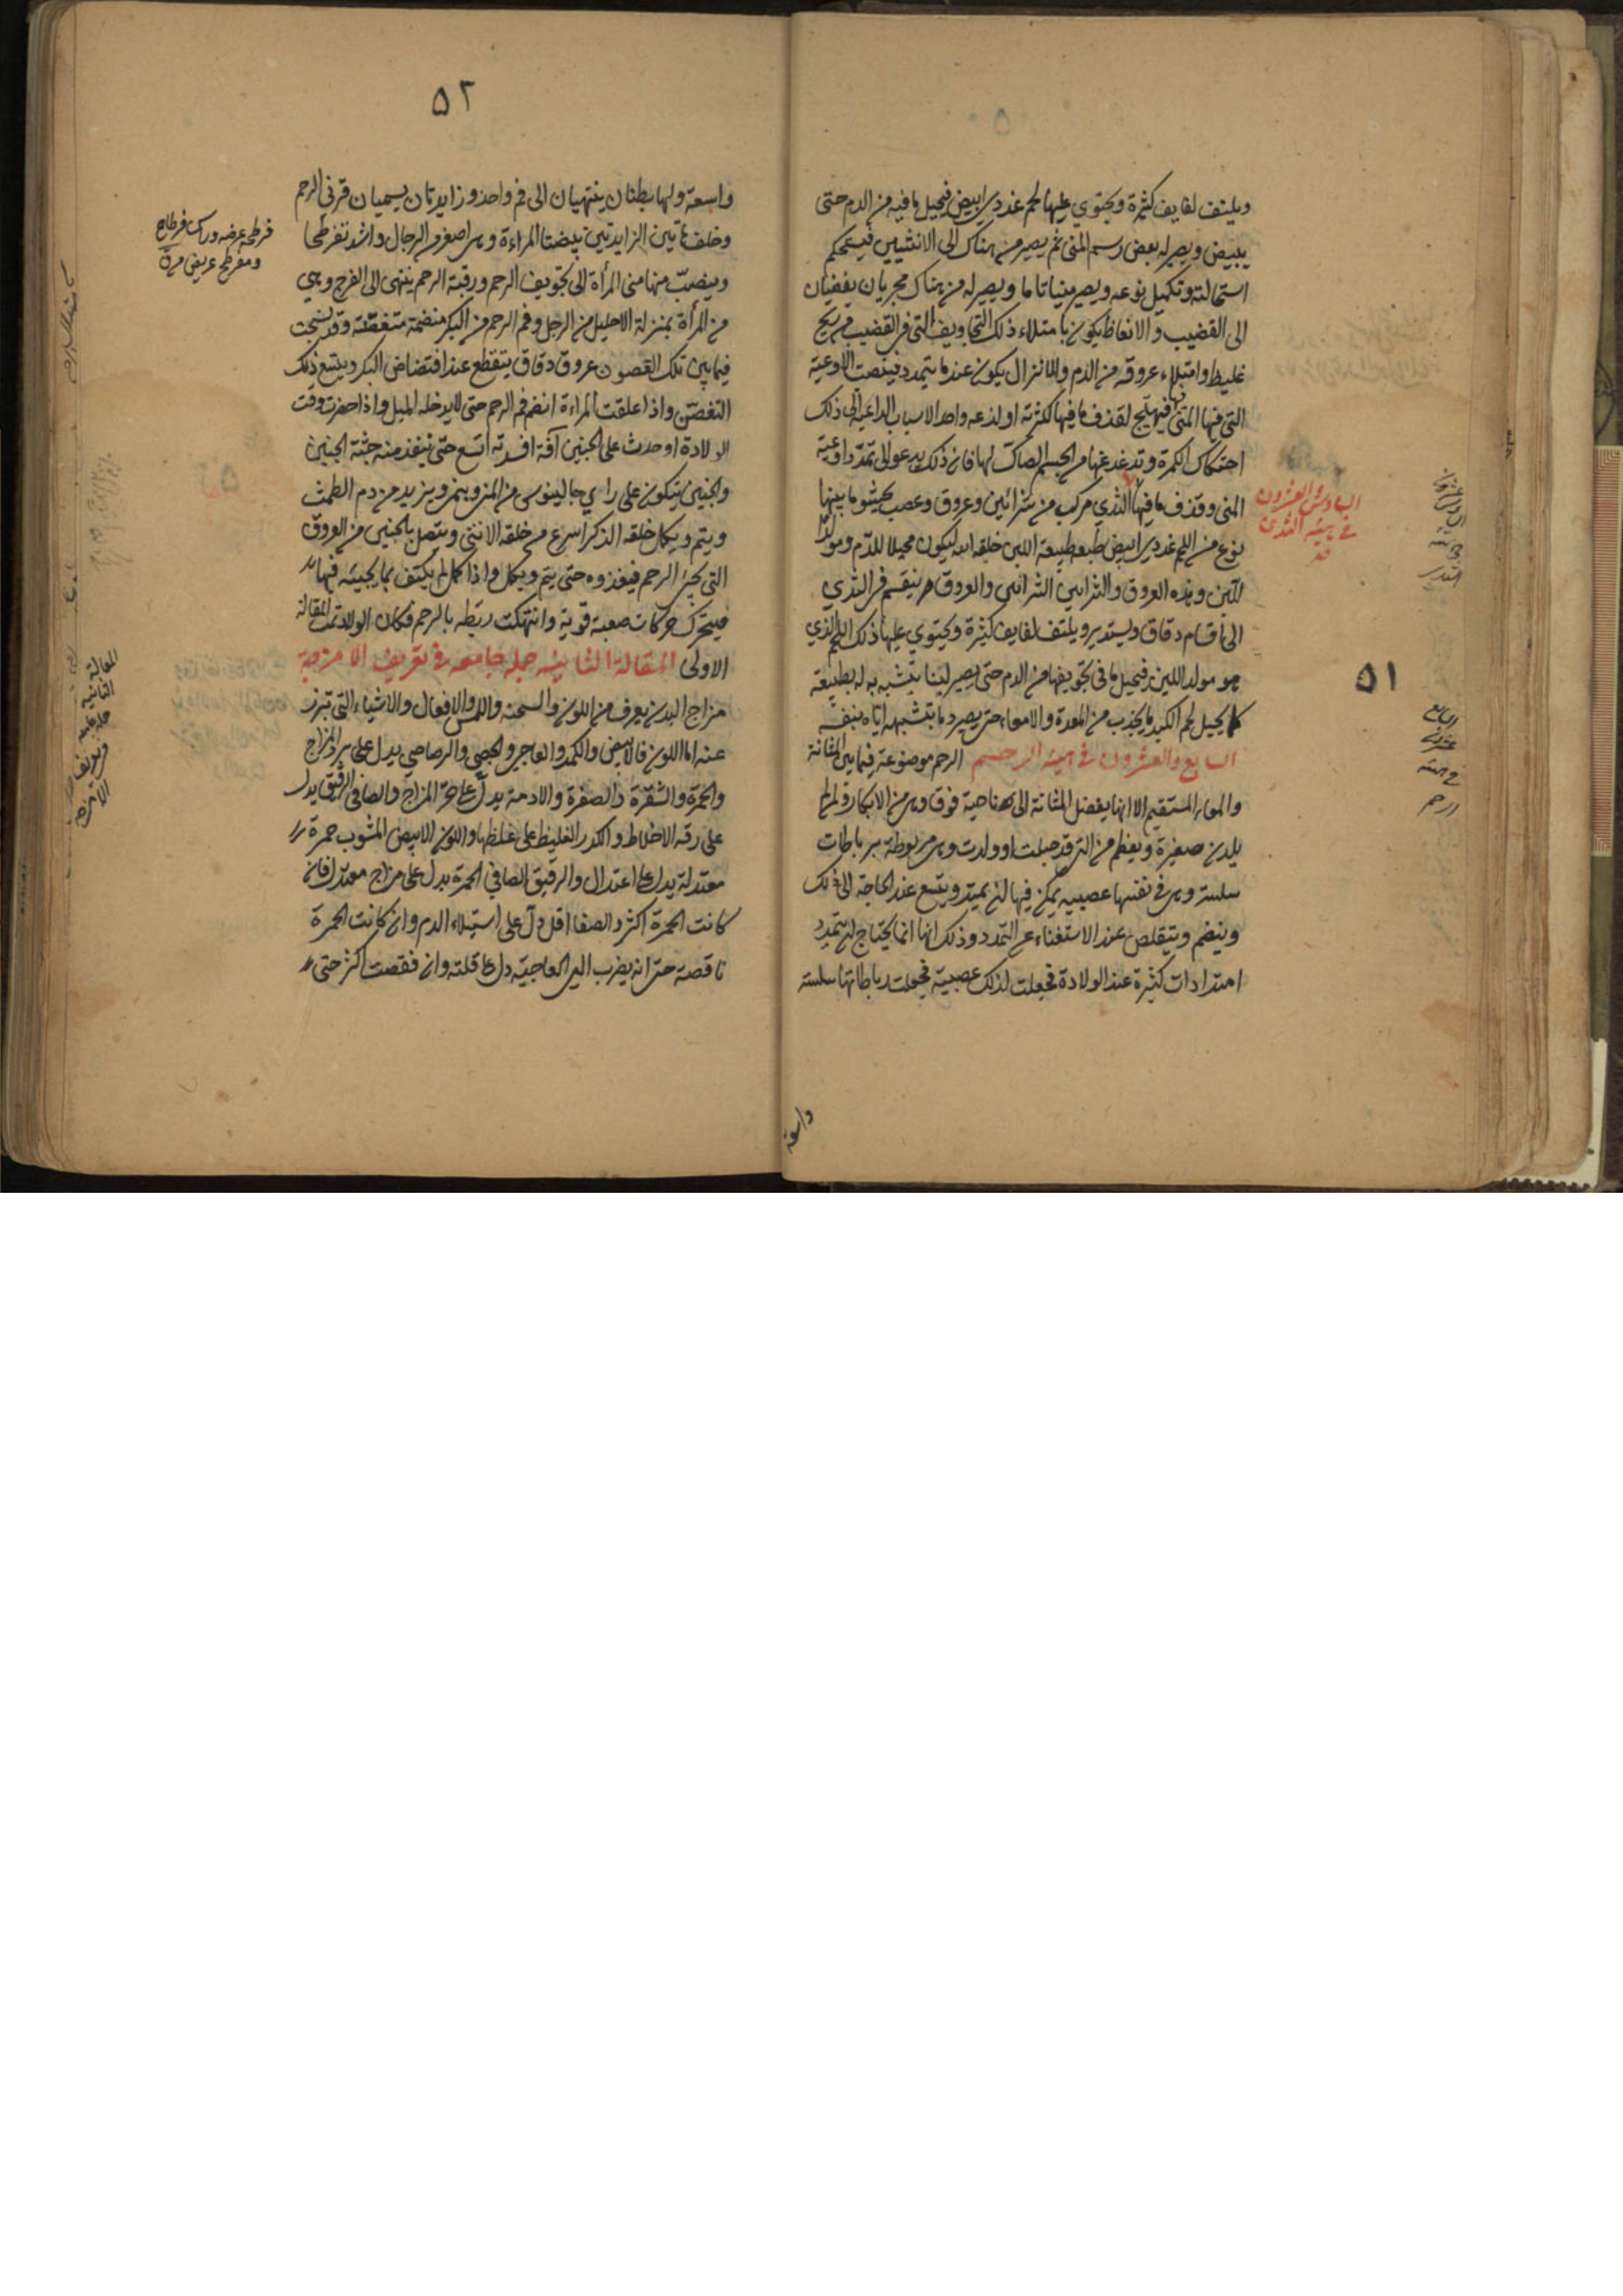 ويلتف لفايف كثيرة ويحتوي عليها لحم غددي ابيض فيحيل ما فيه من الدم حتى
يبيض ويصير له بعض رسم المنى ثم يصير من هناك الى الانثيين فيستحكم
استحالته وتكميل نوعه ويصير منيا تاما ويصير له من هناك مجريان يفضيان
الى القضيب والانعاظ يكون بامتلاء ذلك التجاويف التى فى القضيب من ريح
غليظ وامتلاء عروقه من الدم والانزال يكون عندما يتمدد الاوعية
التى فيها المنى فيهيج لقذف ما فيها لكثرته او لذعه واحد الاسباب الداعية الى ذلك
احتكاك الكمرة وتدغدغها من الجسم الصاك لها فان ذلك يدعو الى تمدد اوعية
المنى وقذف ما فيها الثدي مركب من شرائين وعروق وعصب يحشو ما بينها
السادس والعشرون
فى هيئة الثدى
نوع من اللحم غددي ابيض طبعه طبيعة اللبن خلقه الله ليكون محيلا للدم ومولدا
للبن وهذه العروق والشرايين والعروق ينقسم فى الثدي
الى اقسام دقاق ويستدير ويلتف لفايف كثيرة ويحتوي عليها ذلك اللحم الذي
هو مولد اللبن فيحيل ما فى تجويفها من الدم حتى يصير لبنا بتشبيهه له بطبيعته
٥١
كما يحيل لحم الكبد ما يجذب من المعدة والامعاء حتى يصير دما بتشبيهه اياه بنفسه
السابع والعشرون فى هيئة الرحم الرحم موضوعة فيما بين المثانة
والمعاء المستقيم الا انها يفضل المثانة الى ناحية فوق وهى من الابكار و لم
يلدن صغيرة ويعظم من التى قد حبلت او ولدت وهى مربوطة برباطات
سلسة وهى فى نفسها عصبيه يمكن فيها ان يمتد ويتسع عند الحاجة الى ذلك
وينضم ويتقلص عند الاستغناء عن التمدد وذلك انها انما يحتاج ان تمتد
امتدادات كثيرة عند الولادة فجعلت لذلك عصبية فجعلت رباطاتها سلسة
واسعة
٥٢
واسعة ولها بطنان ينتهيان الى فم واحد وزايدتان يسميان قرنى الرحم
وخلف هاتين الزايدتين بيضتا المراءة وهى اصغر من الرجال واشد تفرطحا
فرطحه عرضه وراس فرطاح
ومفرطح عريض
وينصب منها منى المرأة الى تجويف الرحم ورقبة الرحم ينتهى الى الفرج وهي
من المرأة بمنزلة الاحليل من الرجل وفم الرحم من البكر منضمة متغضنة وقد نسجت
فيما بين تلك الغصون عروق دقاق يتقطع عند افتضاض البكر ويتسع ذلك
التغضن واذا علقت المراءة انضم فم الرحم حتى لا يدخله الميل واذا حضرت وقت
الولادة او حدث على الجنين آفة افسدته اتسع حتى ينفذ منه جثة الجنين
والجنين يتكون على راي جالينوس من المنى وينمى ويزيد من دم الطمث
ويتم ويكمل خلقه الذكر اسرع من خلقه الانثى ويتصل بالجنين من العروق
التى يجئ الرحم فيغذوه حتى يتم ويكمل واذا كمل لم يكتف بما يجيئه فيها
فيتحرك حركات صعبة قوية وانتهكت ربطه بالرحم وكان الولاد تمت المقالة
الاولى المقالة الثانية جمله جامعه فى تعريف الامزجة
المقالة
الثانية
الامزجه
مزاج البدن يعرف من اللون والسحنه واللمس والافعال والاشياء التى تبرز
عنه اما اللون فالابيض والكمد والعاجي والجصي والرصاصي يدل على برد المزاج
والحمرة والشقرة والصفرة والادمة يدل على حر المزاج والصافى الرقيق يدل
على رقه الاخلاط والكدر الغليظ على غلظها واللون الابيض المشوب حمرة
معتدلة يدل على اعتدال والرقيق الصافي الحمرة يدل على مزاج معتدل فان
كانت الحمرة اكثر والصفا اقل دل على استيلاء الدم وان كانت الحمرة
ناقصة حتى انه يضرب الى العاجيه دل على قلته وان نقصت اكثر حتى